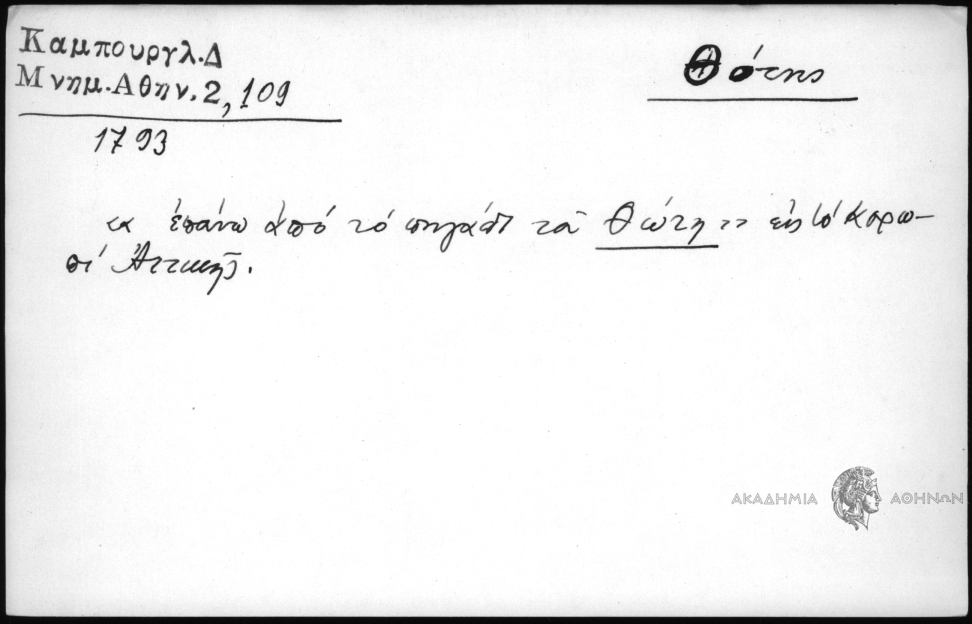 Καμπουργλ.Δ
Μνημ.Αθην.2,109
1793
Θότης
«ἐπάνω ἀπὸ τὸ πηγάδι τοῦ Θώτη» εἰς τὸ Κορω-
πί Ἀττικῆς.
ΑΚΑΔΗΜΙΑ ΑΘΗΝΩΝ